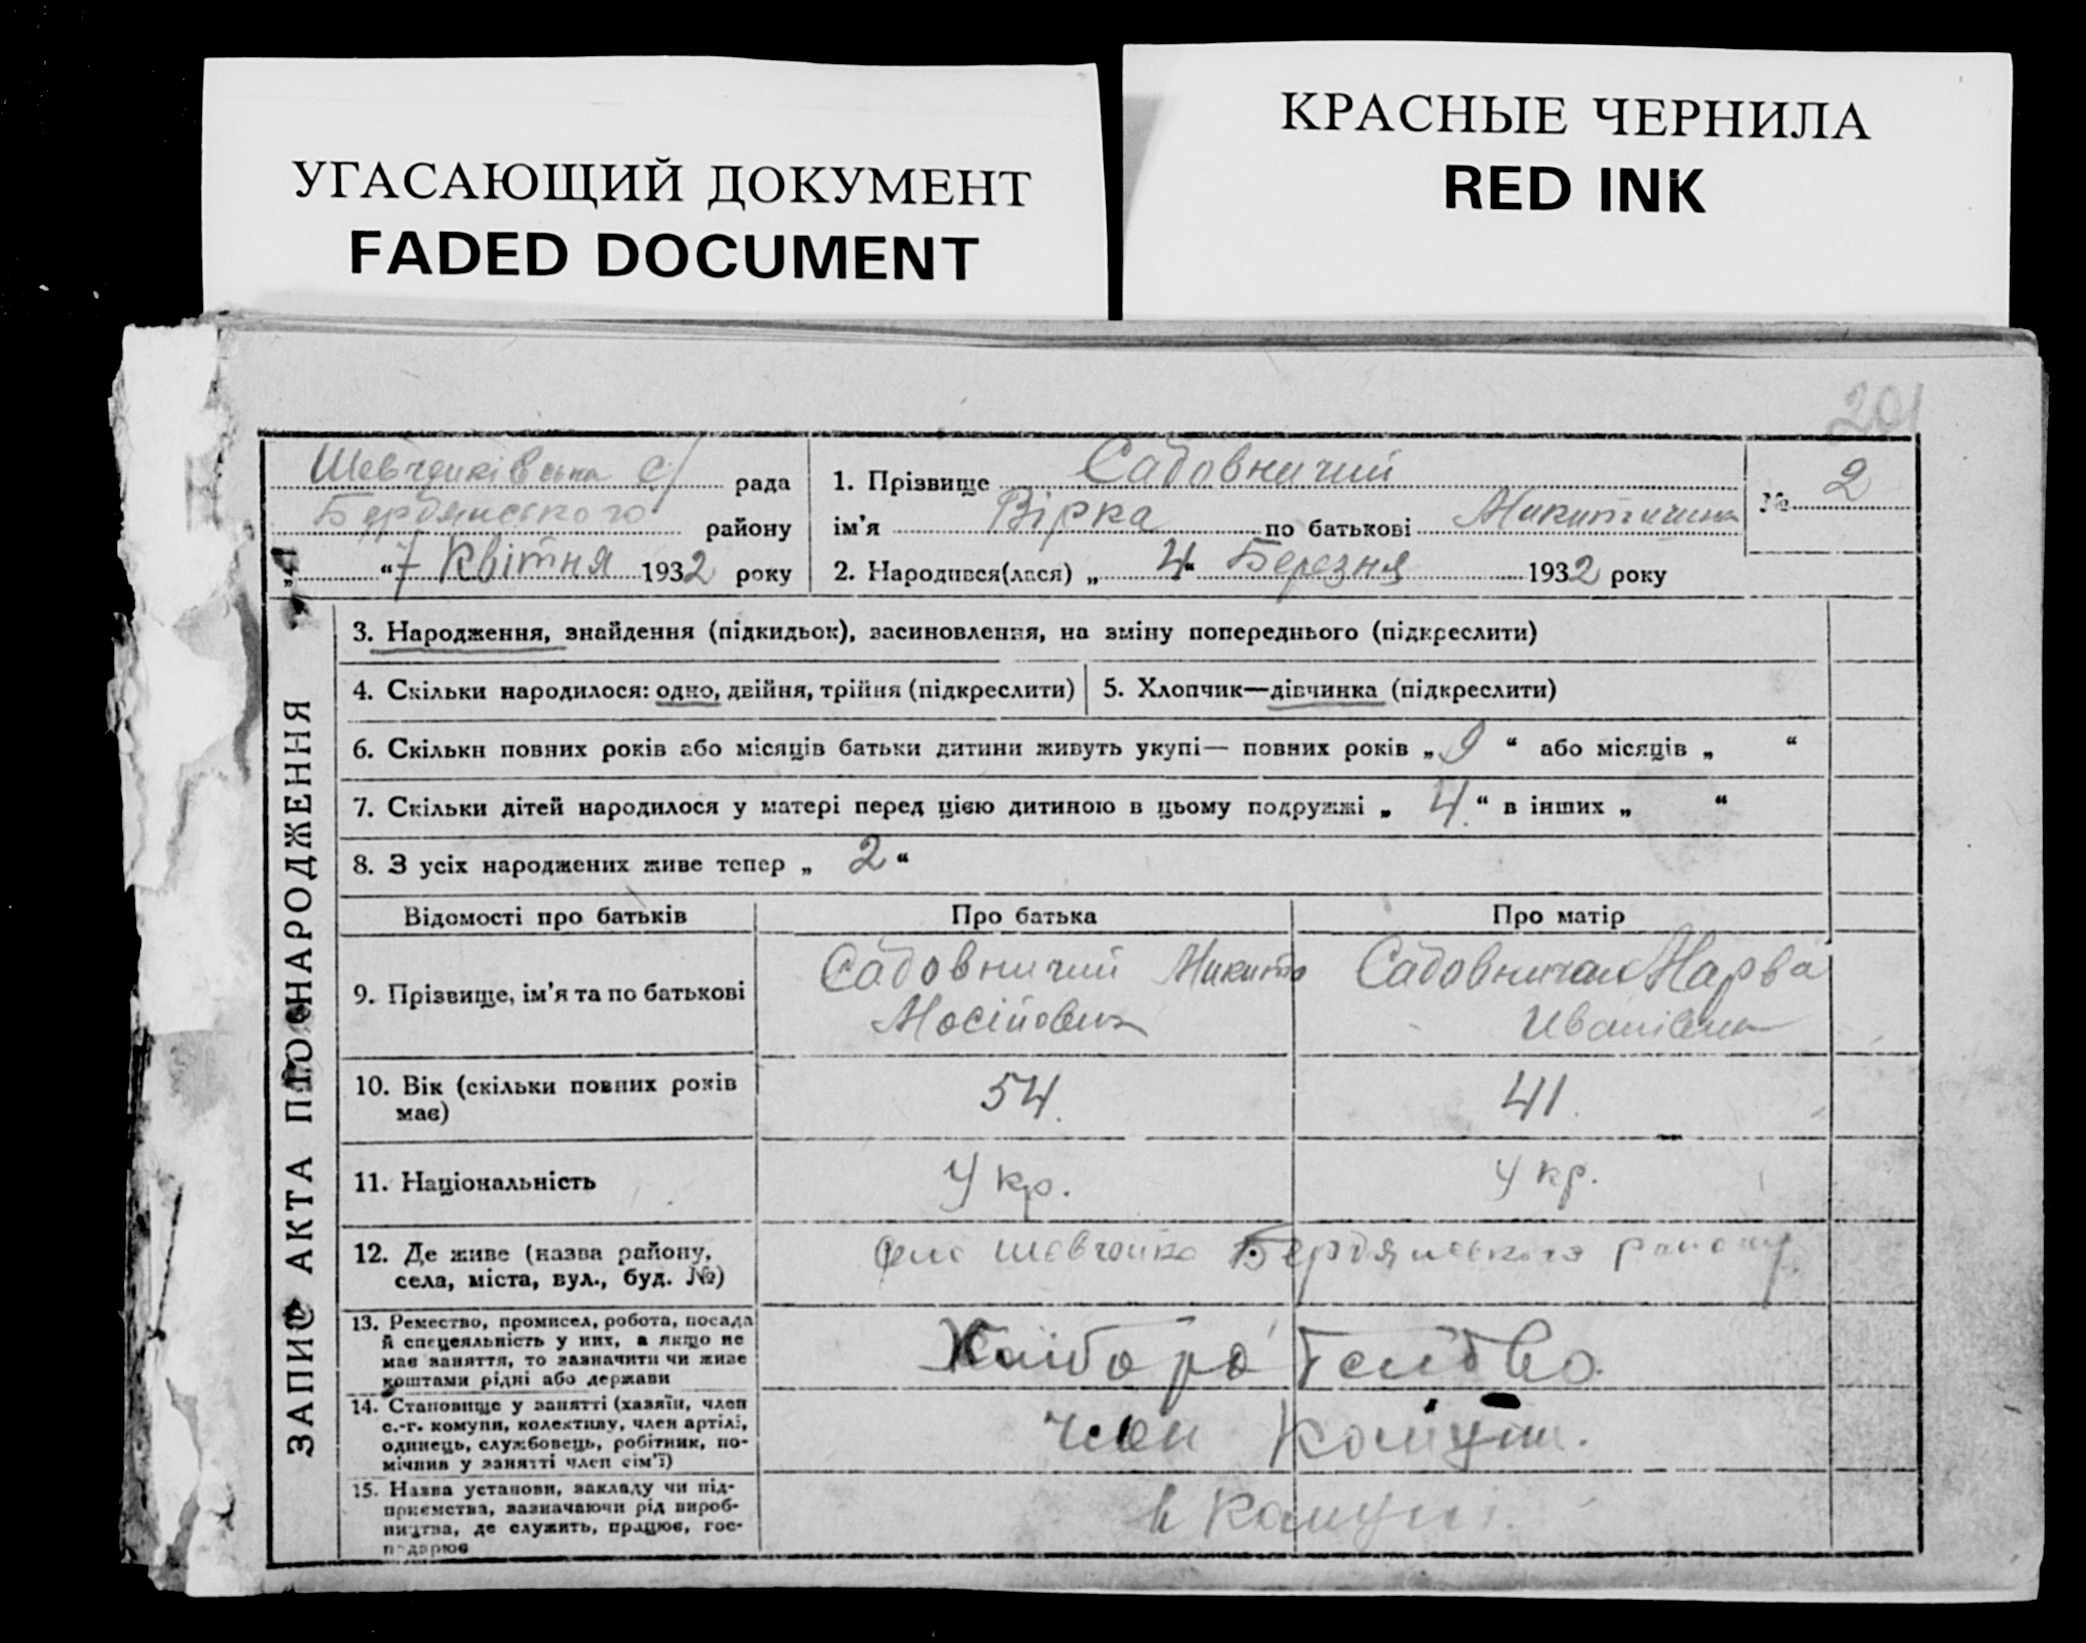 УГАСАЮЩИЙ ДОКУМЕНТ
FADED DOCUMENT
КРАСНЫЕ ЧЕРНИЛА
RED INK
201
Шевченківська с/ рада
Бердянського району
„ “ 7 Квітня 1932 року
1. Прізвище Садовничий
ім'я Вірка по батькові Микитична
2. Народився(лася) „ 4 “ Березня 1932 року
№ 2
ЗАПИС АКТА ПРО НАРОДЖЕННЯ
3. Народження, знайдення (підкидьок), засиновлення, на зміну попереднього (підкреслити)
4. Скільки народилося: одно, двійня, трійня (підкреслити)
5. Хлопчик—дівчинка (підкреслити)
6. Скільки повних років або місяців батьки дитини живуть укупі— повних років „ 9 “ або місяців „ “
7. Скільки дітей народилося у матері перед цією дитиною в цьому подружжі „ 4 “ в інших „ “
8. З усіх народжених живе тепер „ 2 “
Відомості про батьків
Про батька
Про матір
9. Прізвище, ім'я та по батькові
Садовничий Микита
Мосійович
Садовничая Марва
Иванівна
10. Вік (скільки повних років
має)
54.
41.
11. Національність
Укр.
Укр.
12. Де живе (назва району,
села, міста, вул., буд. №)
село Шевченко Бердянського району
13. Ремество, промисел, робота, посада
й спецеяльність у них, а якщо не
має заняття, то зазначити чи живе
коштами рідні або держави
14. Становище у занятті (хазяїн, член
с.-г. комуни, колективу, член артілі,
одинець, службовець, робітник, по-
мічник у занятті член сім'ї)
член Комуни.
15. Назва установи, закладу чи під-
приємства, зазначаючи рід вироб-
ництва, де служить, працює, гос-
подарює
в Комуні.